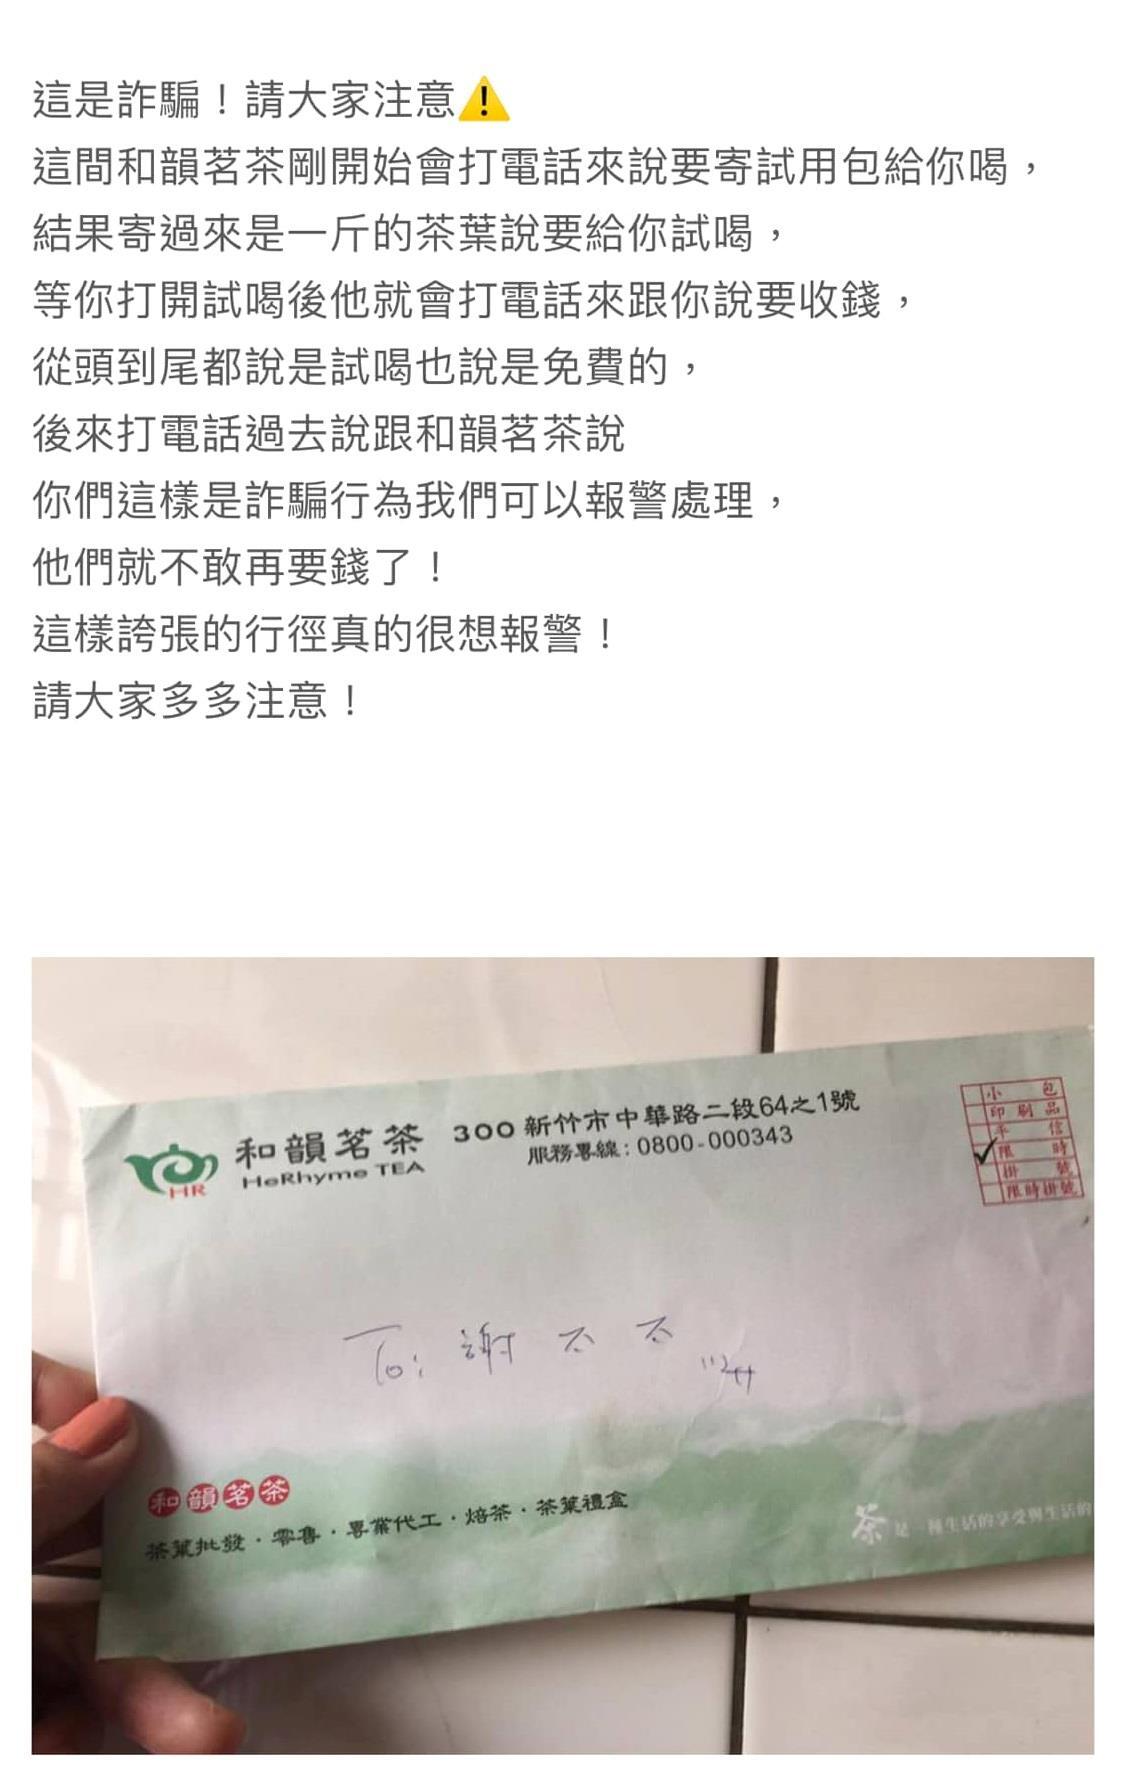 這是詐騙！請大家注意⚠️
這間和韻茗茶剛開始會打電話來說要寄試用包給你喝，
結果寄過來是一斤的茶葉說要給你試喝，
等你打開試喝後他就會打電話來跟你說要收錢，
從頭到尾都說是試喝也說是免費的，
後來打電話過去說跟和韻茗茶說
你們這樣是詐騙行為我們可以報警處理，
他們就不敢再要錢了！
這樣誇張的行徑真的很想報警！
請大家多多注意！
和韻茗茶
HeRhyme TEA
HR
300 新竹市中華路二段64之1號
服務專線：0800-000343
小包
印刷品
平信
限時
掛號
限時掛號
To：謝太太
和韻茗茶
茶葉批發．零售．專業代工．焙茶．茶葉禮盒
茶 是一種生活的享受與生活的